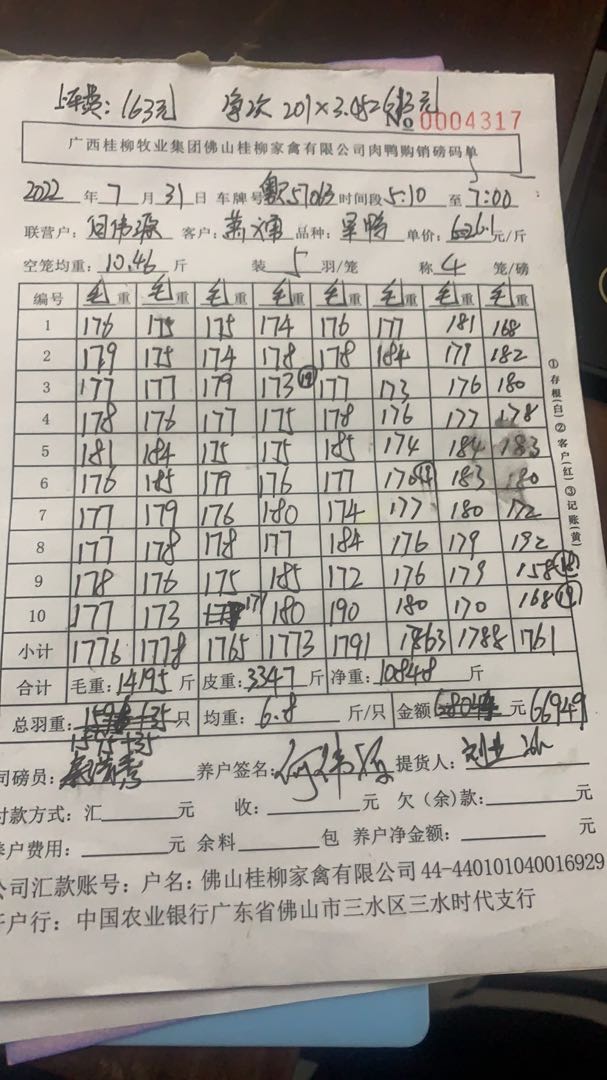 上车费：163元 净次 201×3.05=613元
№0004317
广西桂柳牧业集团佛山桂柳家禽有限公司肉鸭购销磅码单
2022年7月31日 车牌号 57063 时间段5:10至7:00
联营户： 客户： 品种： 鸭 单价： 元/斤
空笼均重：10.46斤 装5羽/笼 称4笼/磅
编号 毛重 毛重 毛重 毛重 毛重 毛重 毛重 毛重
1 176 175 175 174 176 177 181 168
2 179 175 174 178 178 184 179 182
3 177 177 179 173(19) 177 173 176 180
4 178 176 177 175 178 176 177 178
5 181 184 175 175 185 174 184 183
6 176 185 179 176 177 170 183 180
7 177 179 176 180 174 177 180 172
8 177 178 178 177 184 176 179 192
9 178 176 175 185 172 176 179 158(18)
10 177 173 177 180 190 180 170 168(19)
小计 1776 1778 1765 1773 1791 1763 1788 1761
合计 毛重：14195斤 皮重：3347斤 净重：10848斤
总羽重： 只 均重：6.8斤/只 金额 元 66949
1575+35
司磅员： 养户签名：何伟源 提货人：
付款方式：汇 元 收： 元 欠（余）款： 元
养户费用： 元 余料 包 养户净金额： 元
公司汇款账号：户名：佛山桂柳家禽有限公司 44-440101040016929
开户行：中国农业银行广东省佛山市三水区三水时代支行
①存根(白)②客户(红)③记账(黄)